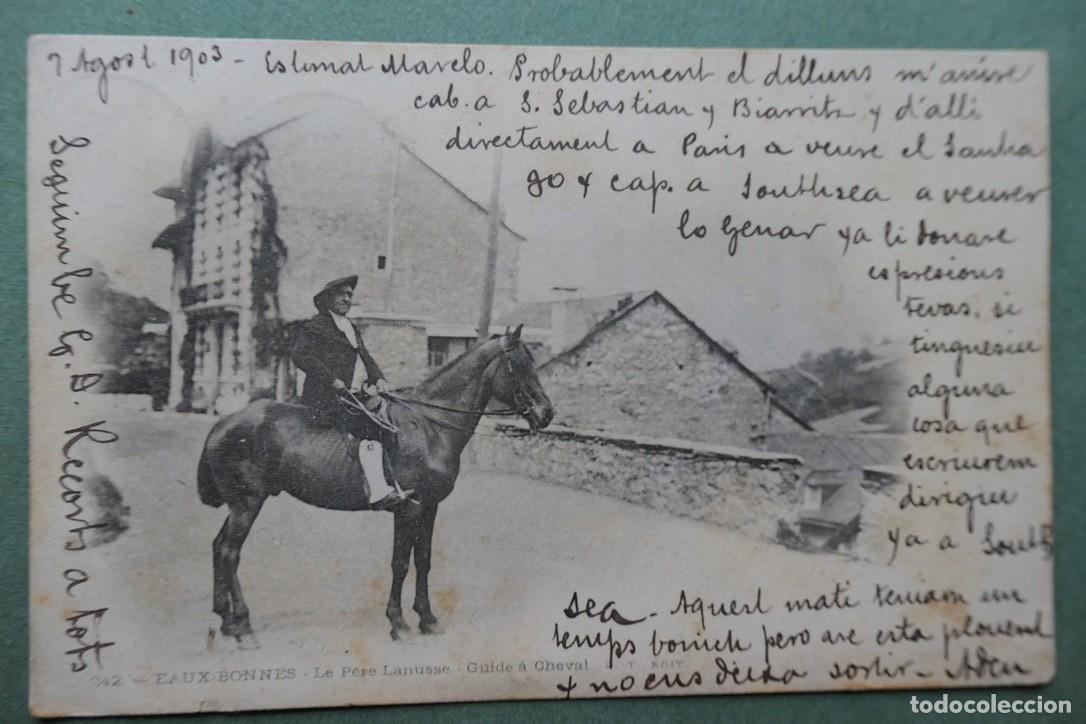 7 Agost 1903 - Estimat Marelo. Probablement el dilluns m'anire
cab. a S. Sebastian y Biarritz y d'alli
directament a Paris a veure el Santia
go y cap. a Southsea a veurer
lo Genar ya li donare
espresions
tevas, si
tinguesiu
alguna
cosa que
escriurem
dirigiu
ya a South
sea - Aquest mati teniam un
temps bonich pero are esta plouent
y no ens deixa sortir - Adeu
Seguim be G. D. Recorts a tots
242 - EAUX-BONNES - Le Père Lanusse - Guide à Cheval EDIT.
todocoleccion
todocoleccion.net